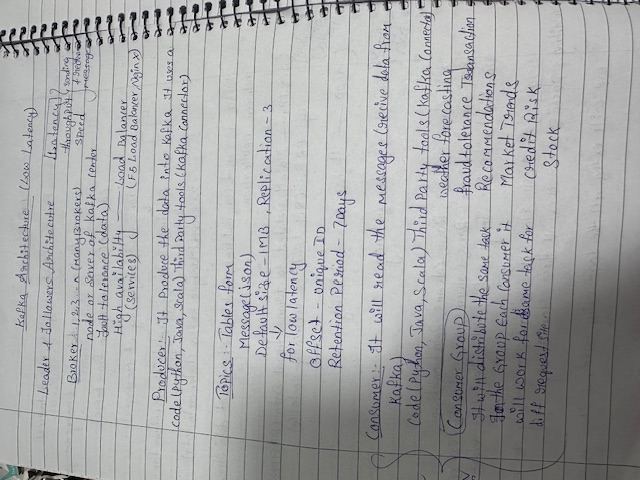 Kafka Architecture (Low Latency)
Leader & followers Architecutre
[Latency]
throughput
speed
sending
& recive
message
Broker 1,2,3 - n (Many Brokers)
node or server of Kafka center
fault tolerance (data)
High availabilty — Load Balancer
(services) (F5 Load Balancer, Nginx)
Producer:- It produce the data into Kafka It uses a
code (Python, Java, Scala) Third Party tools (Kafka Connector)
Topics:- Tables form
Message (json)
Default size - 1MB, Replication - 3
↓
for low latency
Offset - unique ID
Retention Period - 7Days
Consumer:- It will read the messages (recive data from
Kafka)
Code (Python, Java, Scala) Third Party tools (Kafka Connector)
Consumer Group
It will distribute the same task
In the Group Each Consumer it
will work for same task for
diff request
weather forecasting
fraud tolerance Transaction
Recommendations
Market Trends
credit Risk
Stock